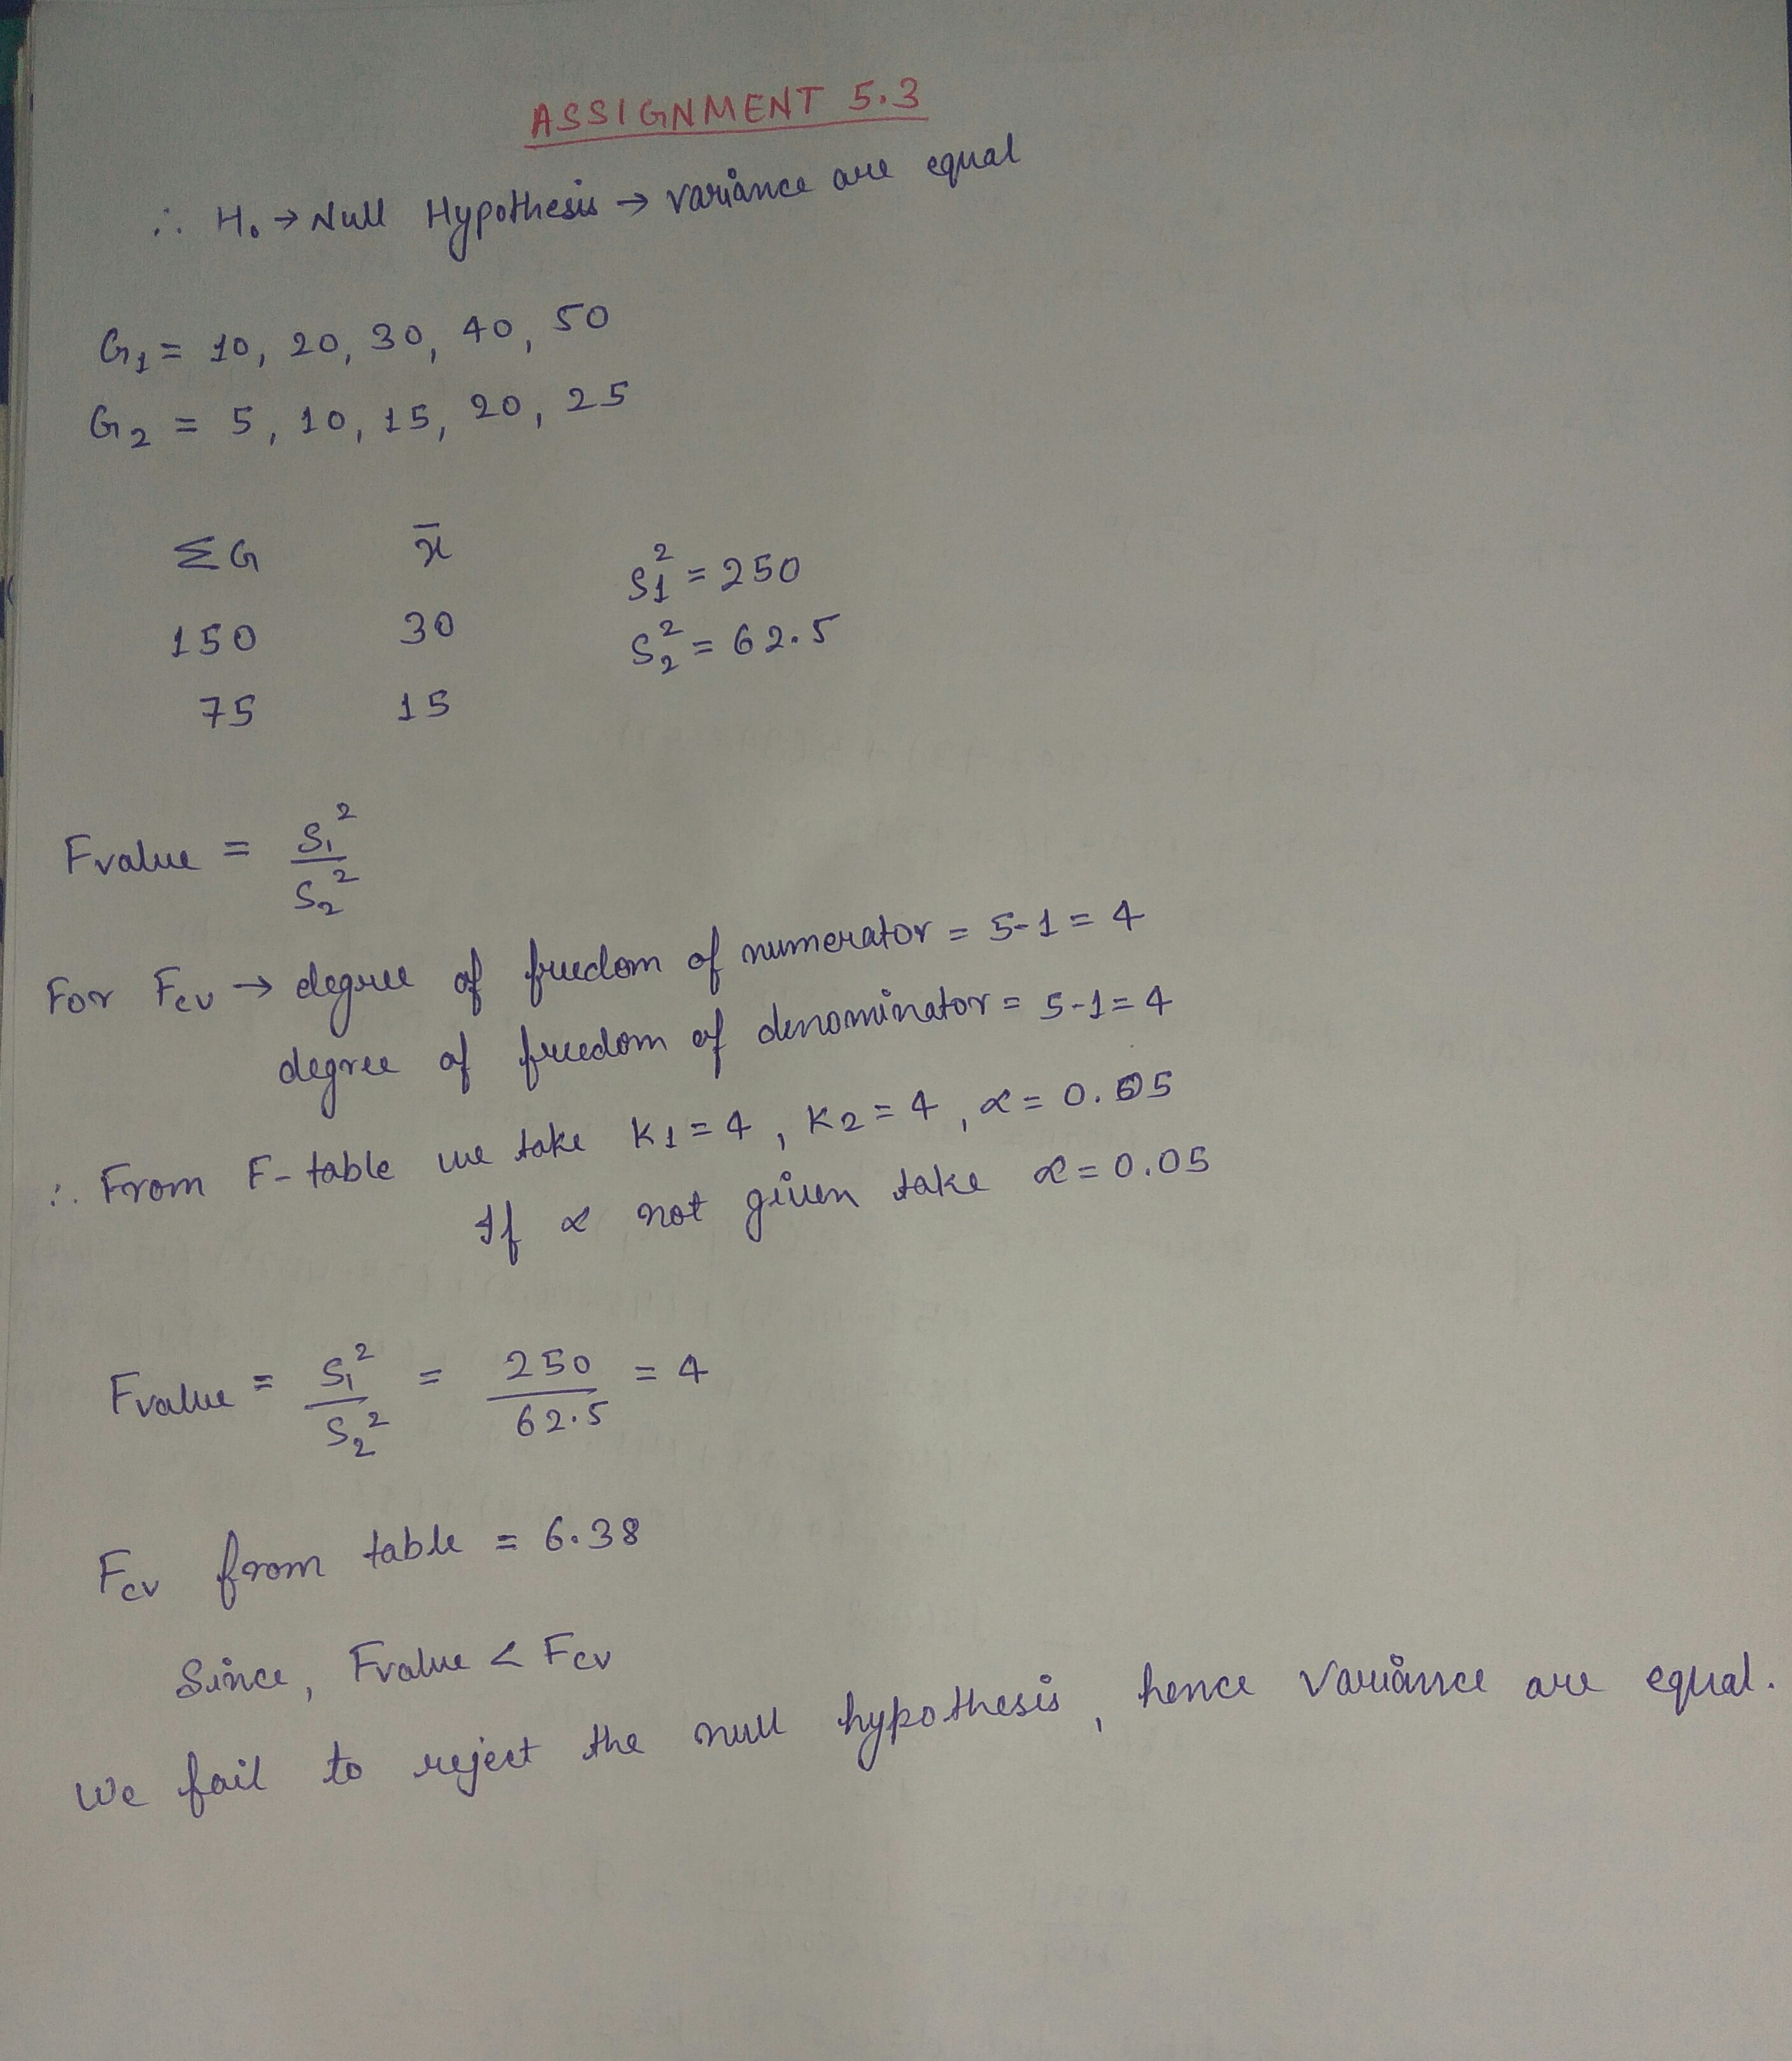 ASSIGNMENT 5.3
∴ H₀ → Null Hypothesis → variance are equal
G₁ = 10, 20, 30, 40, 50
G₂ = 5, 10, 15, 20, 25
ΣG x̄
S₁² = 250
150 30
S₂² = 62.5
75 15
Fvalue = S₁² / S₂²
For Fcv → degree of freedom of numerator = 5-1 = 4
degree of freedom of denominator = 5-1 = 4
∴ From F-table we take K₁ = 4, K₂ = 4, α = 0.05
If α not given take α = 0.05
Fvalue = S₁² / S₂² = 250 / 62.5 = 4
Fcv from table = 6.38
Since, Fvalue < Fcv
We fail to reject the null hypothesis, hence variance are equal.